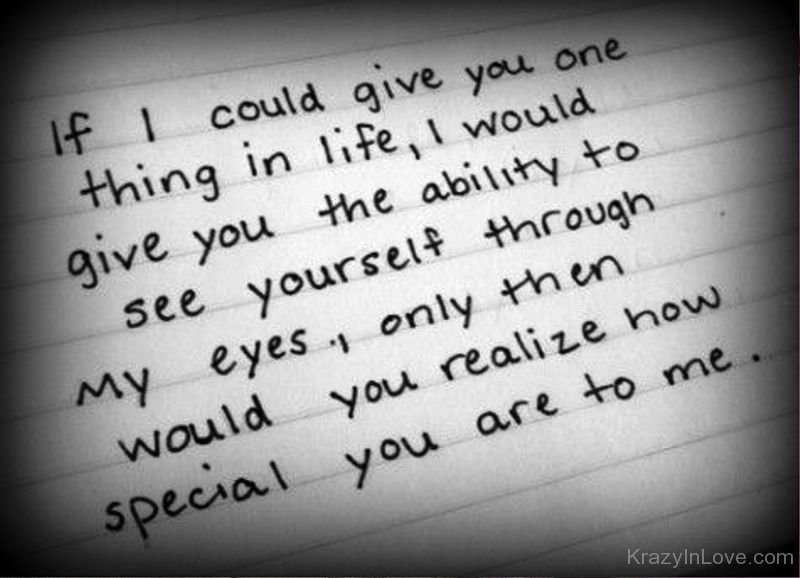 If I could give you one
thing in life, I would
give you the ability to
see yourself through
My eyes., only then
would you realize how
special you are to me.
KrazyInLove.com